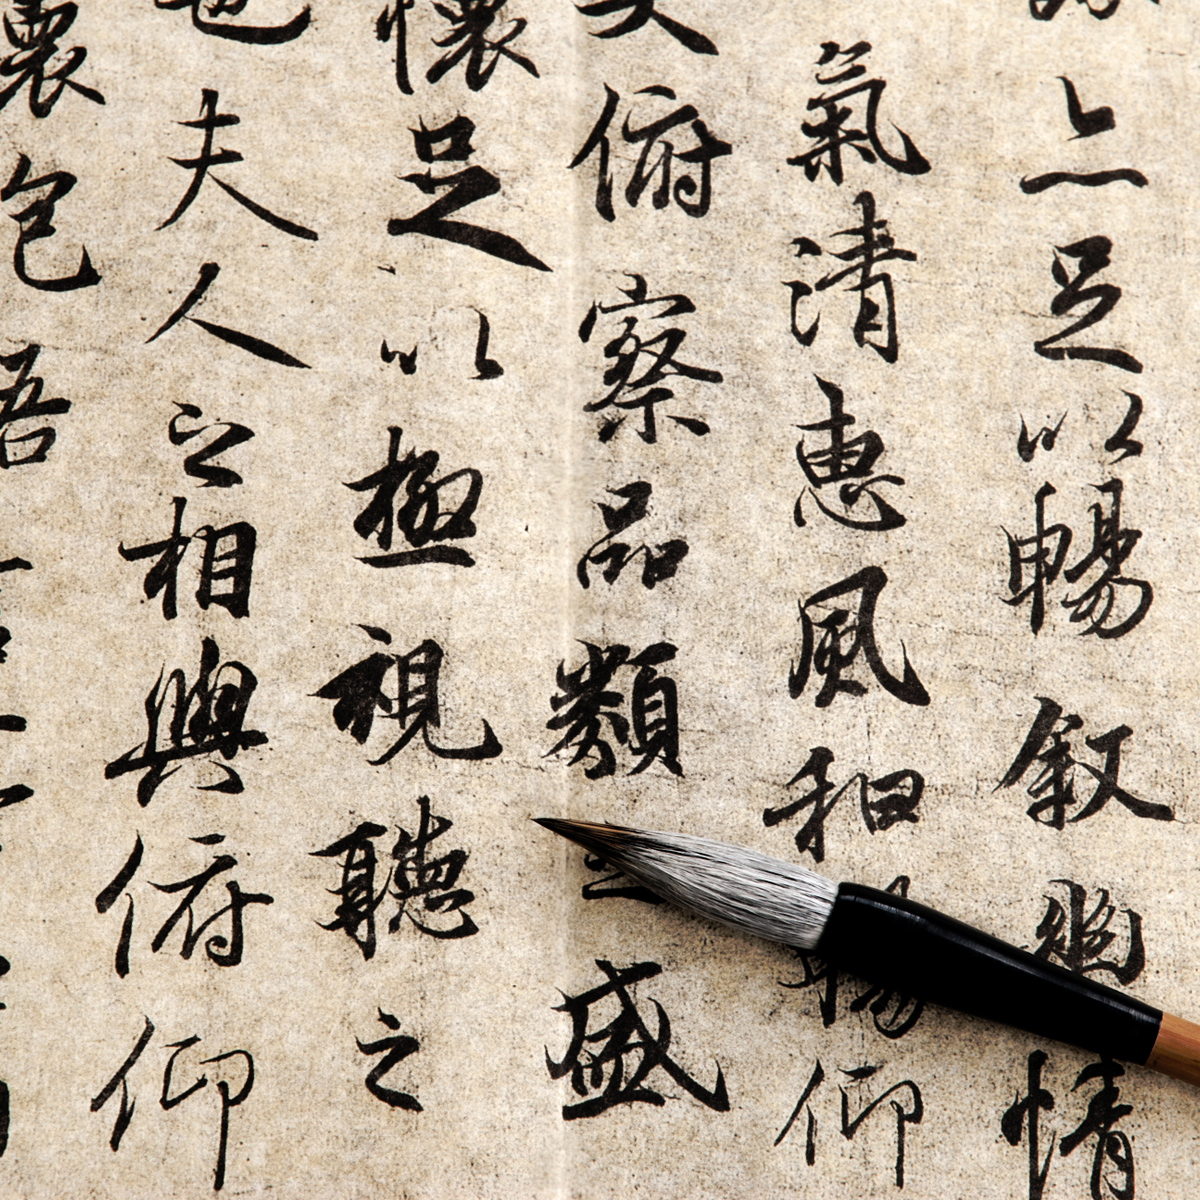 亦足以暢叙幽情
氣清惠風和暢仰
俯察品類盛
懷足以極視聽之
也夫人之相與俯仰